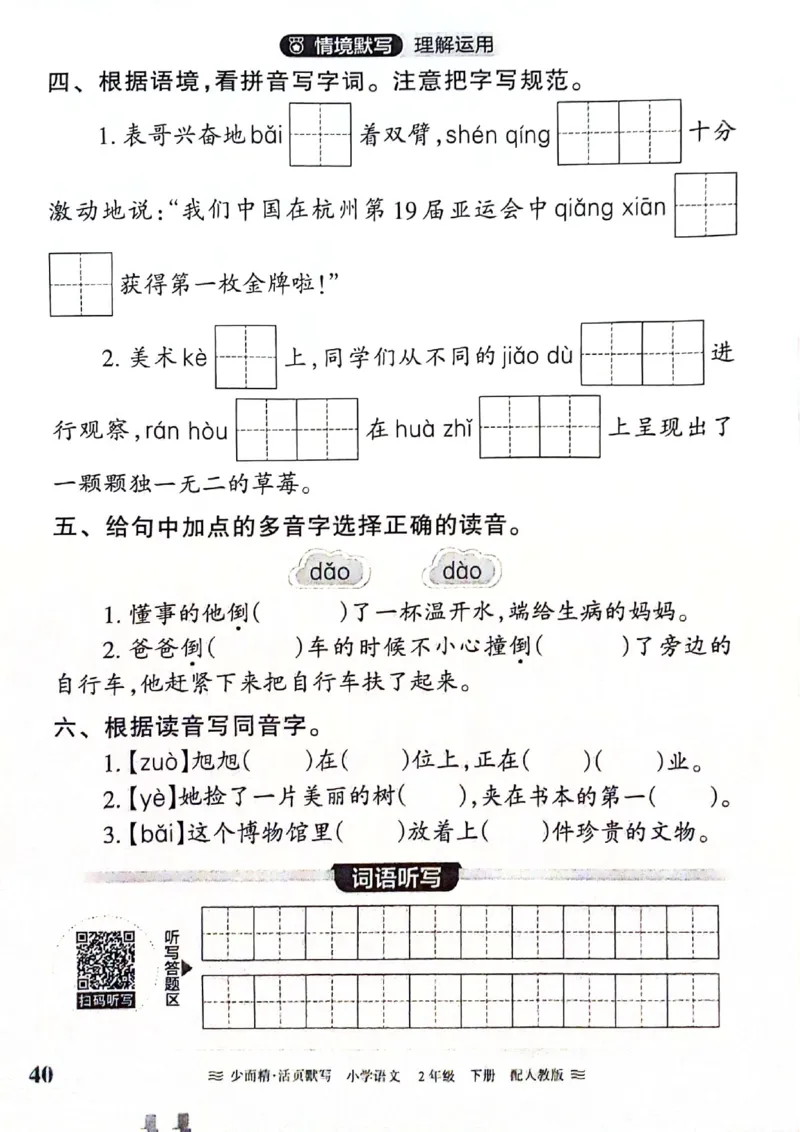 情境默写 理解运用
四、根据语境,看拼音写字词。注意把字写规范。
1. 表哥兴奋地bǎi 着双臂,shén qíng 十分
激动地说:“我们中国在杭州第19届亚运会中qiǎng xiān
获得第一枚金牌啦!”
2. 美术kè 上,同学们从不同的jiǎo dù 进
行观察,rán hòu 在huà zhǐ 上呈现出了
一颗颗独一无二的草莓。
五、给句中加点的多音字选择正确的读音。
dǎo dào
1. 懂事的他倒( )了一杯温开水,端给生病的妈妈。
2. 爸爸倒( )车的时候不小心撞倒( )了旁边的
自行车,他赶紧下来把自行车扶了起来。
六、根据读音写同音字。
1.【zuò】旭旭( )在( )位上,正在( )( )业。
2.【yè】她捡了一片美丽的树( ),夹在书本的第一( )。
3.【bǎi】这个博物馆里( )放着上( )件珍贵的文物。
词语听写
听写答题区
扫码听写
40 少而精·活页默写 小学语文 2年级 下册 配人教版